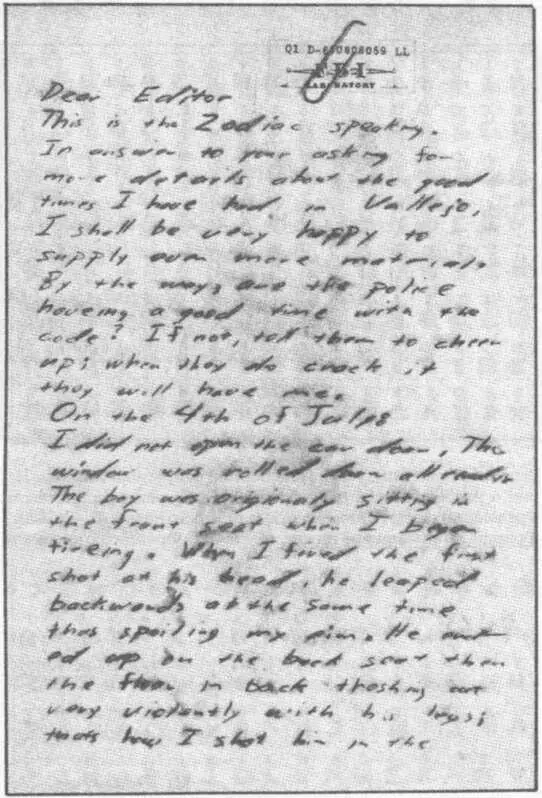 Q1 D-690808059 LL
FBI
LABORATORY
Dear Editor
This is the Zodiac speaking.
In answer to your asking for
more details about the good
times I have had in Vallejo,
I shall be very happy to
supply even more material.
By the way, are the police
haveing a good time with the
code? If not, tell them to cheer
up; when they do crack it
they will have me.
On the 4th of July:
I did not open the car door, The
window was rolled down all ready
The boy was origionaly sitting in
the front seat when I began
fireing. When I fired the first
shot at his head, he leaped
backwards at the same time
thus spoiling my aim. He end
ed up on the back seat then
the floor in back thashing out
very violently with his legs;
thats how I shot him in the